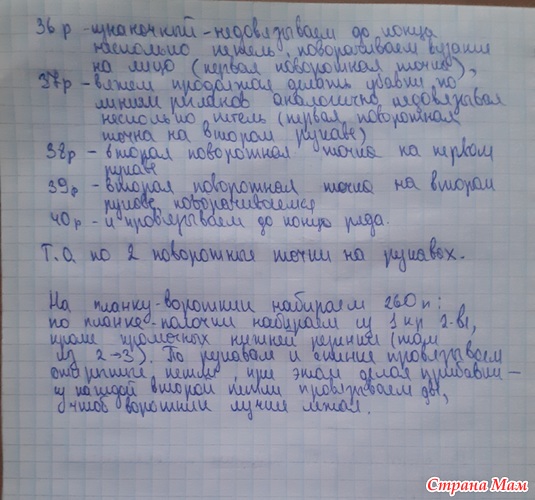 36 р - изнаночный - недовязываем до конца
несколько петель, поворачиваем вязание
на лицо (первая поворотная точка),
37р - вяжем продолжая делать убавки по
линиям регланов аналогично недовязывая
несколько петель (первая поворотная
точка на втором рукаве)
38р - вторая поворотная точка на первом
рукаве
39р - вторая поворотная точка на втором
рукаве, поворачиваемся
40р - и провязываем до конца ряда.
Т.о. по 2 поворотные точки на рукавах.
На планку-воротник набираем 260 п:
по планке-полочки набираем из 1 кр 2-е,
кроме кромочных нижней резинки (там
из 2→3). По рукавам и спинке провязываем
открытые петли, при этом делая прибавки -
из каждой второй петли провязываем две,
чтоб воротник лучше лежал.
Страна Мам